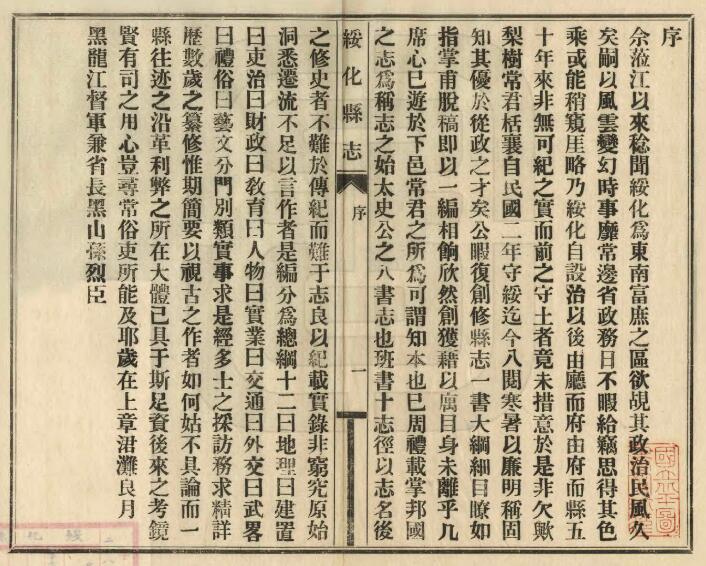 序
余蒞江以來稔聞綏化爲東南富庶之區欲覘其政治民風久
矣嗣以風雲變幻時事靡常邊省政務日不暇給竊思得其色
乘或能稍窺厓略乃綏化自設治以後由廳而府由府而縣五
十年來非無可紀之實而前之守土者竟未措意於是非欠歟
梨樹常君栝襄自民國二年守綏迄今八閱寒暑以廉明稱固
知其優於從政之才矣公暇復創修縣志一書大綱細目瞭如
指掌甫脫稿即以一編相餉欣然創獲藉以寓目身未離乎几
席心已遊於下邑常君之所爲可謂知本也已周禮載掌邦國
之志爲稱志之始太史公之八書志也班書十志徑以志名後
綏化縣志
序
一
之修史者不難於傳紀而難于志良以紀載實錄非窮究原始
洞悉遷流不足以言作者是編分爲總綱十二曰地理曰建置
曰吏治曰財政曰教育曰人物曰實業曰交通曰外交曰武畧
曰禮俗曰藝文分門別類實事求是經多士之採訪務求精詳
歷數歲之纂修惟期簡要以視古之作者如何姑不具論而一
縣往迹之沿革利弊之所在大體已具于斯足資後來之考鏡
賢有司之用心豈尋常俗吏所能及耶歲在上章涒灘良月
黑龍江督軍兼省長黑山孫烈臣